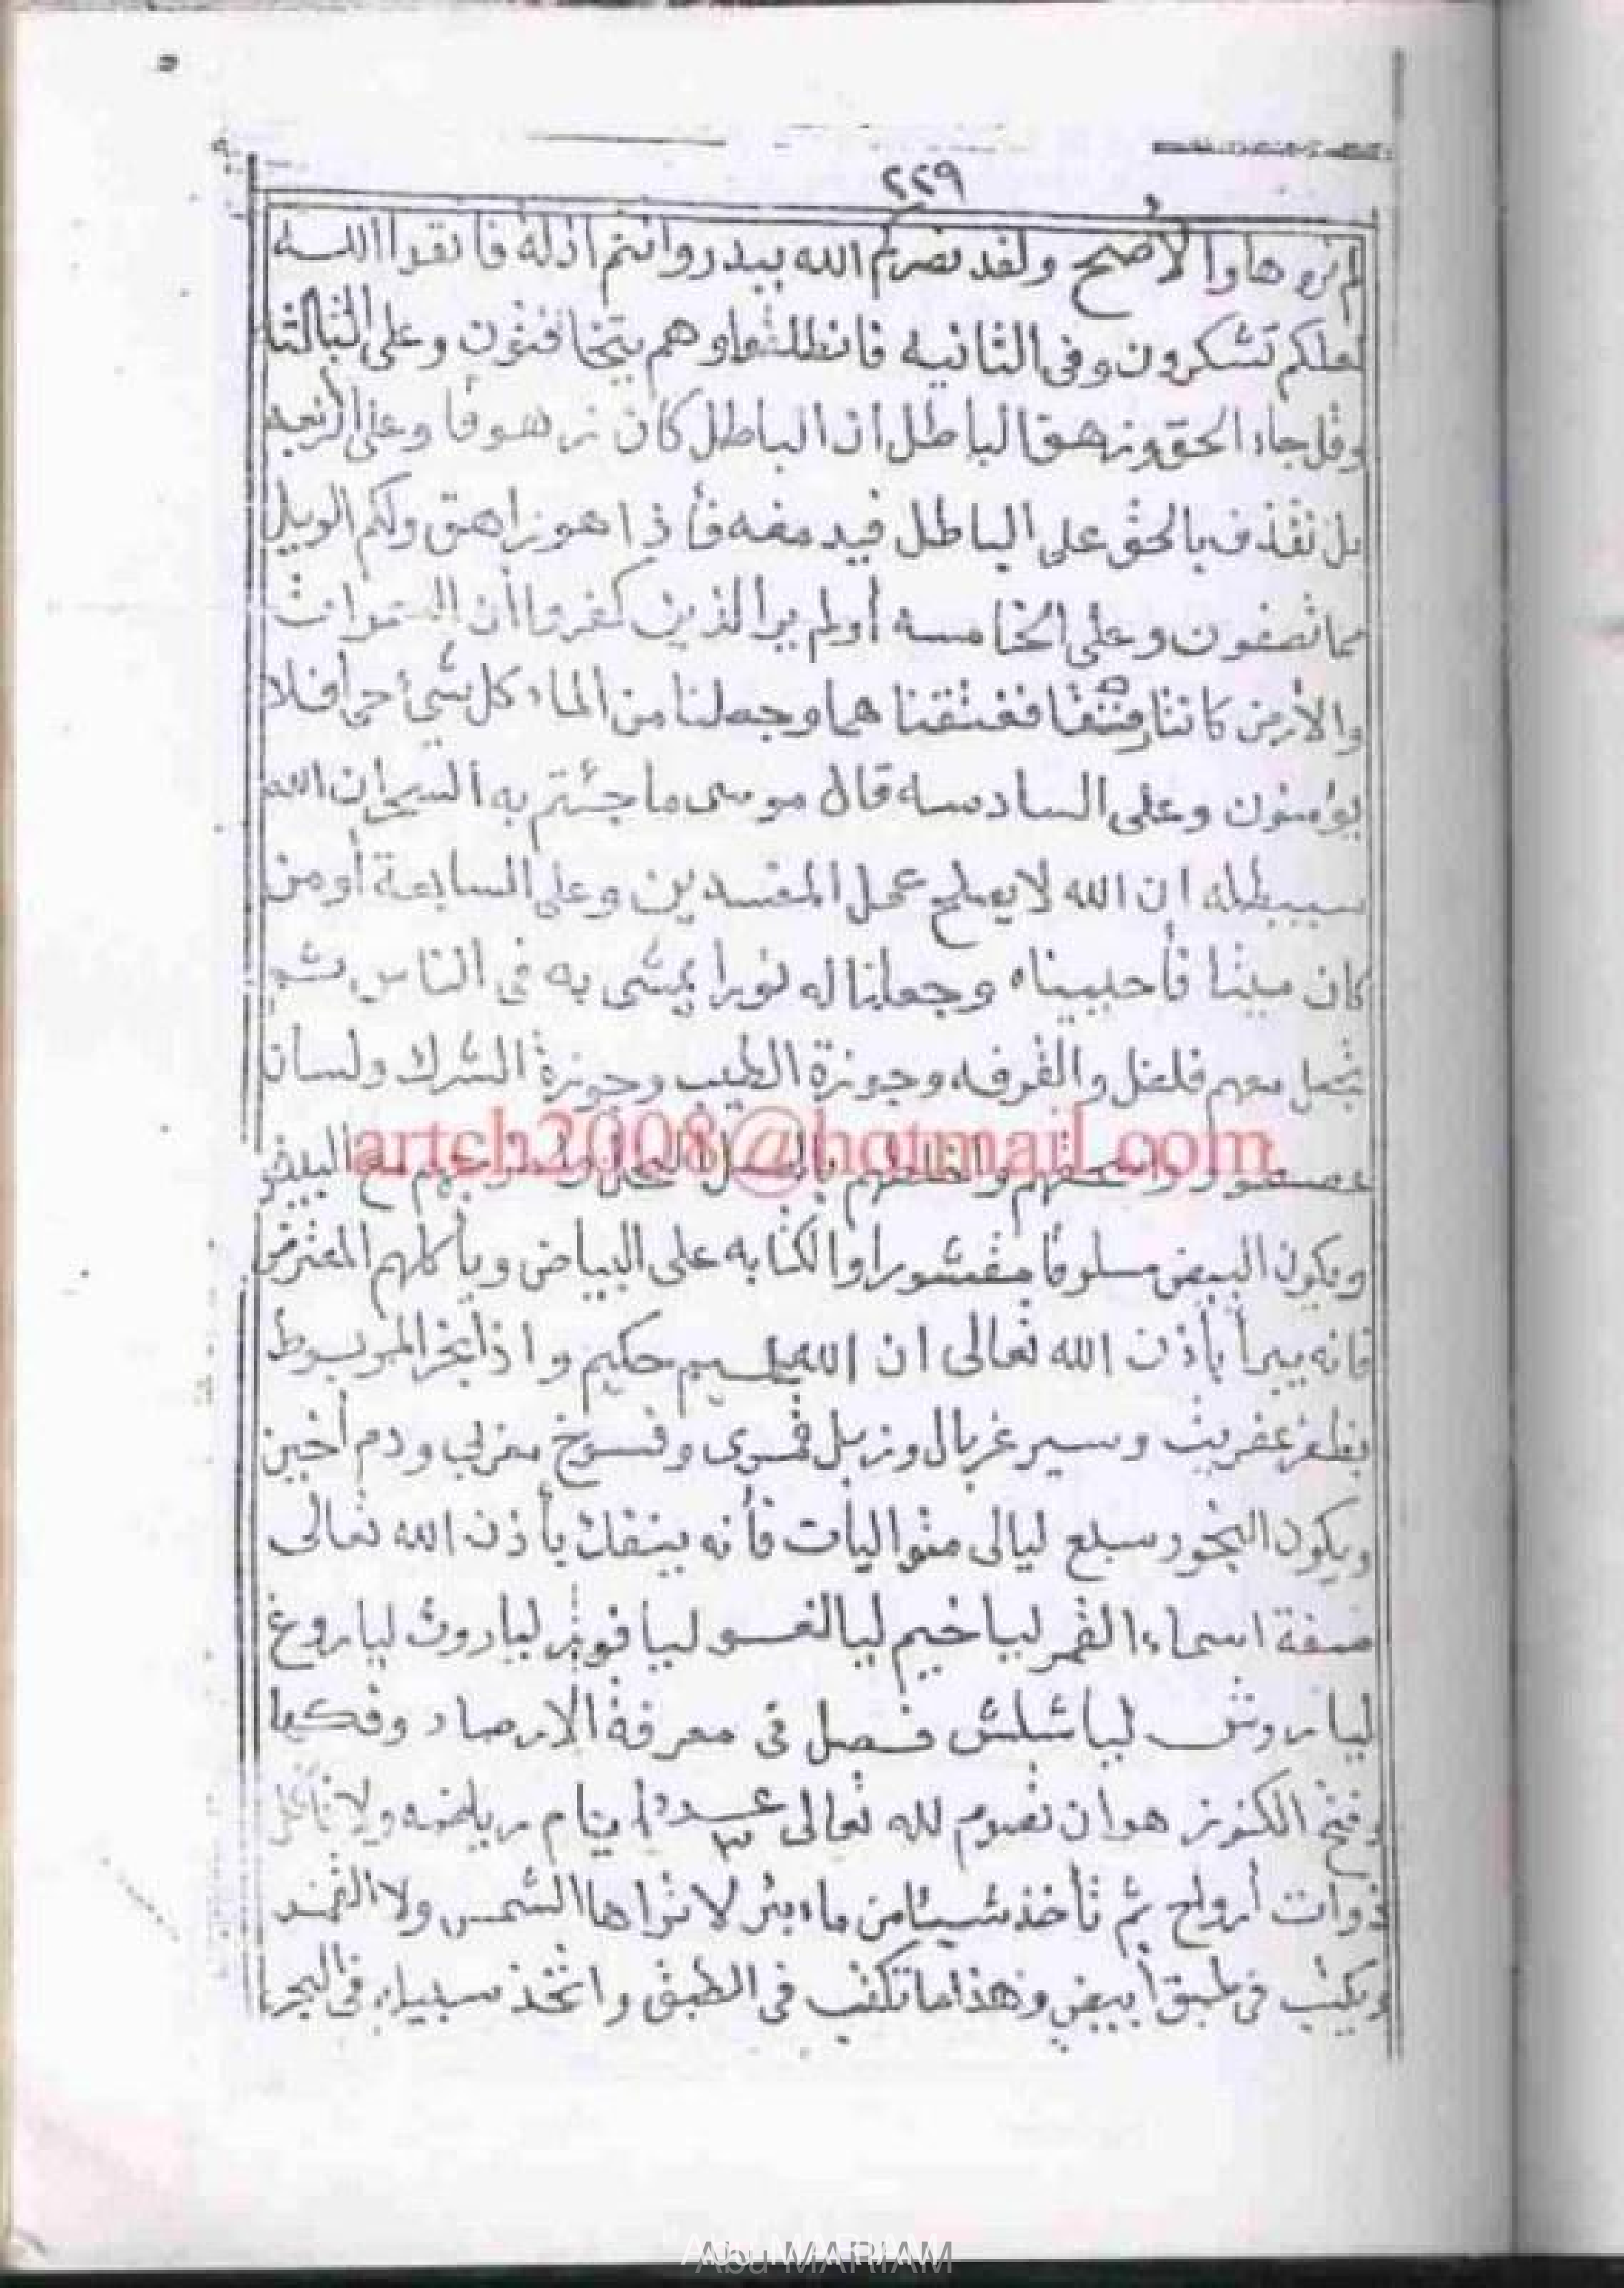 ٢٢٩
لم تروها والأصح ولقد نصركم الله ببدر وانتم اذلة فاتقوا الله
لعلكم تشكرون وفى الثانيه فانطلقوا وهم يتخافتون وعلى الثالثا
وقل جاء الحق وزهق الباطل ان الباطل كان زهوقا وعلى الربعه
بل نقذف بالحق على الباطل فيدمغه فأذا هو زاهق ولكم الويل
مما تصفون وعلى الخامسه أولم ير الذين كفروا أن السموات
والأرض كانتا رتقا ففتقنا هما وجعلنا من الماء كل شئ حى أفلا
يؤمنون وعلى السادسه قال موسى ما جئتم به السحر ان الله
سيبطله ان الله لا يصلح عمل المفسدين وعلى السابعة أو من
كان ميتا فأحييناه وجعلنا له نورا يمشى به فى الناس ثم
تجعل معهم فلفل والقرفه وجوزة الطيب وجوزة الشرك ولسان
عصفور واسحقهم واخلطهم بالعسل النحل مع البيض
artch2008@hotmail.com
ويكون البيض مسلوقا مقشورا والكتابه على البياض ويأكلهم
فانه يبرأ بأذن الله تعالى ان الله حكيم واذا بخر المربوط
بظفر عفريت وسير غربال وزبل قمرى وفسوخ مغربى ودم أخين
ويكون البخور سبع ليالى متواليات فأنه ينفك بأذن الله تعالى
صفة اسماء القمر لياخيم ليالغو ليافور لياروث لياروغ
لياروش لياشلش فصل فى معرفة الارصاد وفكها
وفتح الكنوز هو ان تصوم لله تعالى عدد ٣ ايام رياضه ولا تأكل
ذوات أرواح ثم تأخذ شيئا من ماء بئر لا تراها الشمس ولا القمر
ويكتب فى طبق أبيض وهذا ما تكتب فى الطبق واتخذ سبيله فى البحر
Abu MARIAM